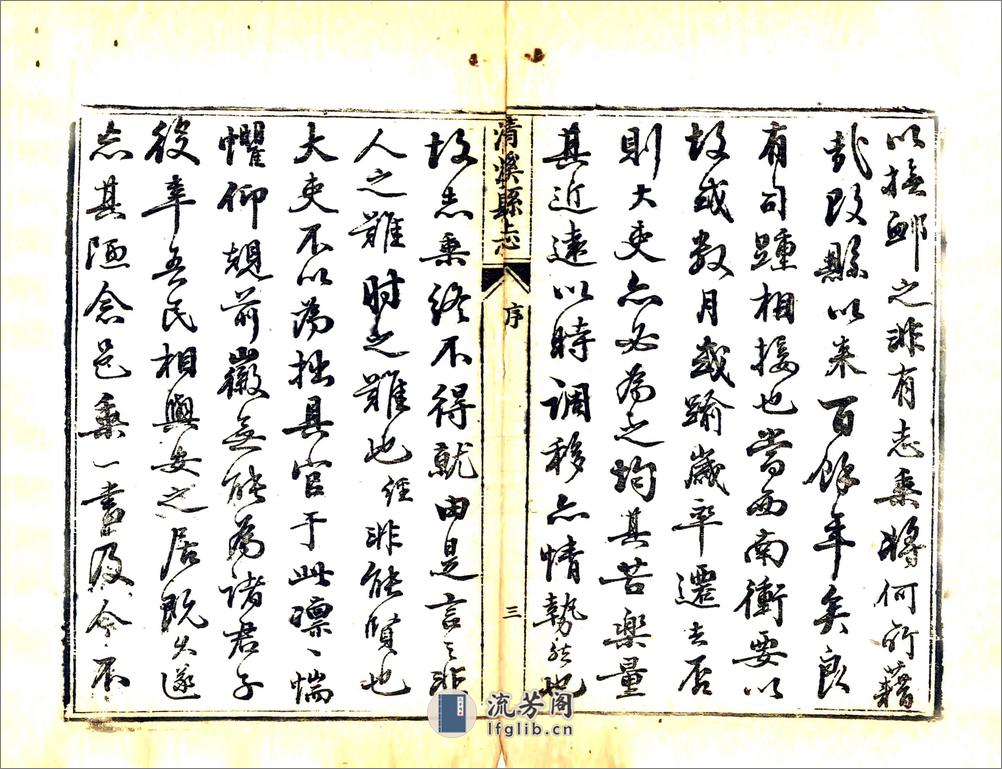 以撫郵之非有志乘將何所藉
哉改縣以来百餘年矣良
有司踵相接也當西南衝要以
故或数月或踰歲卒遷去否
則大吏亦必為之均其苦樂量
其近遠以時調移亦情勢然也
清溪縣志
序
三
故志乘終不得就由是言之非
人之難時之難也經非能賢也
大吏不以為拙具官于此凛〻惴
懼仰覩前徽無能為諸君子
役幸吾民相與安之居既久遂
忘其陋念邑乘一書及今不
流芳阁
lfglib.cn